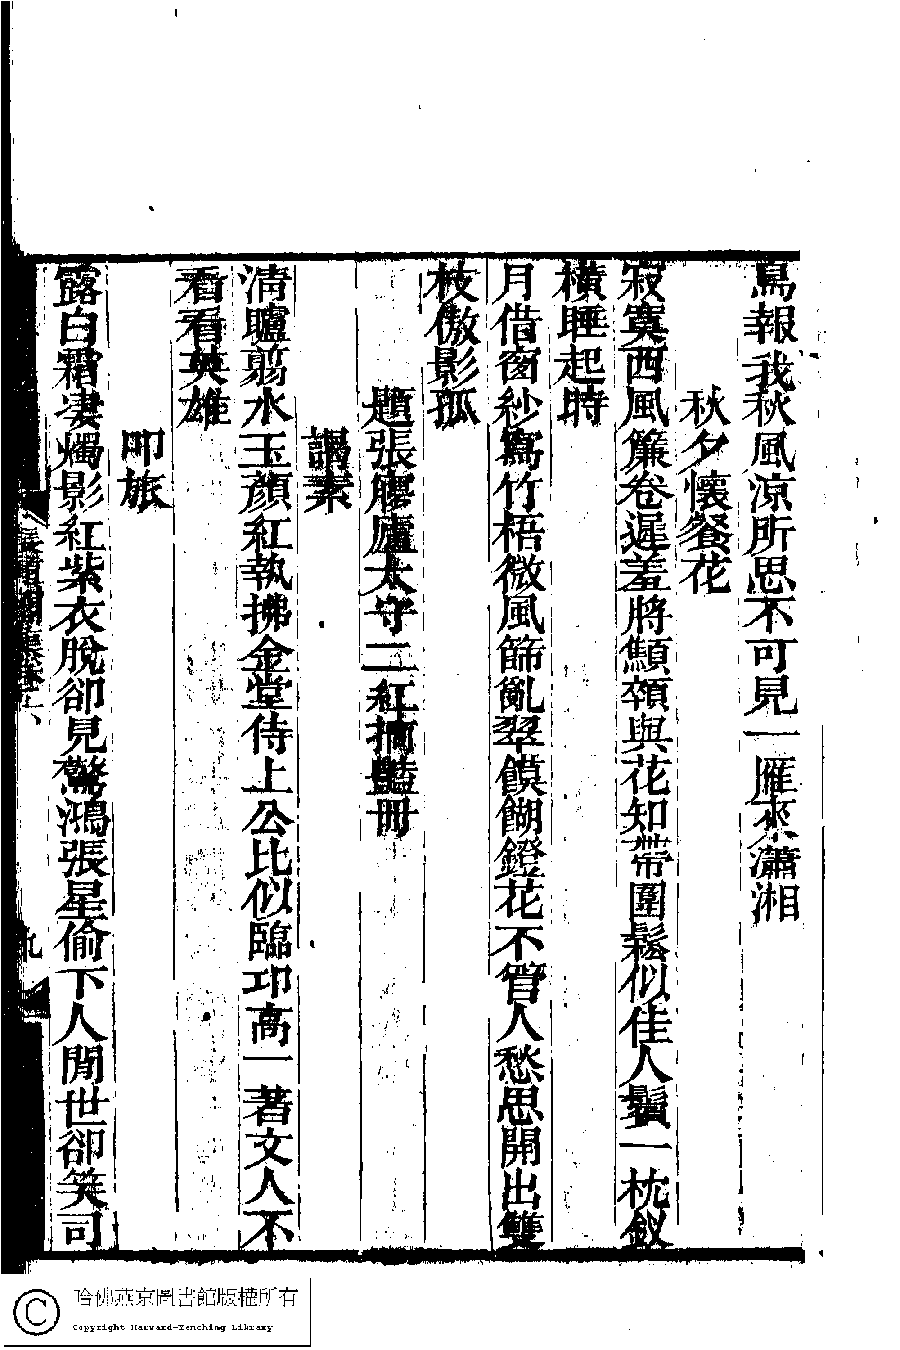 鳥報我秋風涼所思不可見一雁來瀟湘
秋夕懷餐花
寂寞西風簾卷遲羞將顦顇與花知帶圍鬆似佳人鬢一枕釵
橫睡起時
月借窗紗寫竹梧微風篩亂翠饃餬鐙花不管人愁思開出雙
枝傲影孤
題張廖廬太守二紅摘豔冊
謁素
淸矑翦水玉顏紅執拂金堂侍上公比似臨邛高一著文人不
看看英雄
叩旅
露白霜凄燭影紅紫衣脫卻見驚鴻張星偷下人閒世卻笑司
九
哈佛燕京圖書館版權所有
Copyright Harvard-Yenching Library